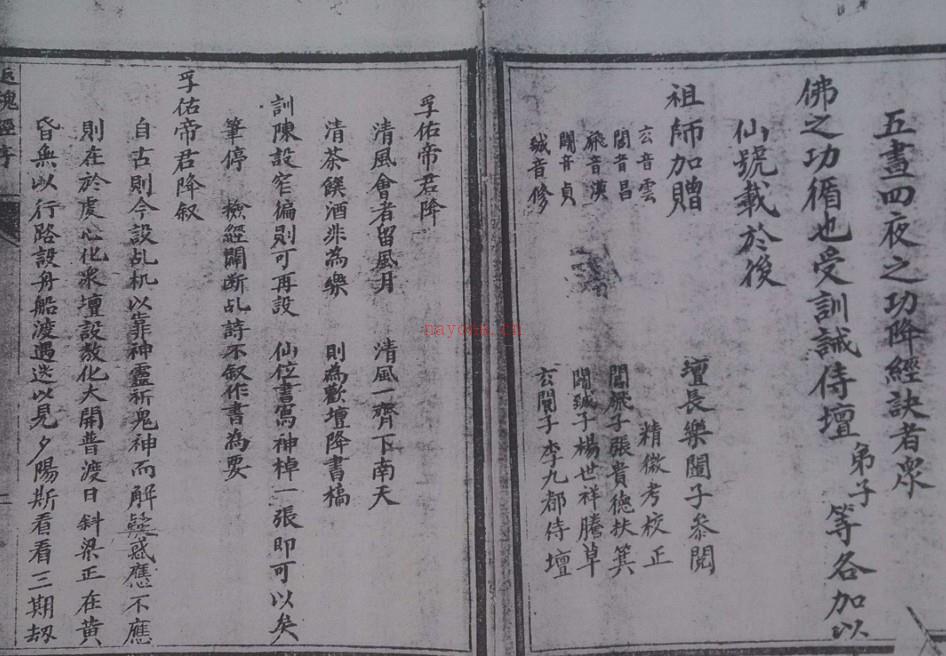 五晝四夜之功降經訣者眾
佛之功循也受訓誡侍壇弟子等各加以
仙號載於後
壇長樂闓子參閱
祖師加贈 精微考校正
玄音雲 闓飛子張貴德扶箕
闓音昌 闓誠子楊世祥騰草
飛音漢 玄闓子李九都侍壇
闓音貞
誠音修
孚佑帝君降
清風會者留風月 清風一齊下南天
清茶饌酒非為樂 則為歡壇降書稿
訓陳設窄偏則可再設 仙位書寫神棹一張即可以矣
筆停 檢經闡断乩詩不叙作書為要
孚佑帝君降叙
自古則今設乩机以靠神靈祈鬼神而解疑惑應不應
則在於虔心化眾壇設教化大開普渡日斜梁正在黃
昏無以行路設舟船渡過迷以見夕陽斯看看三期劫
魂經序
nayona.cn